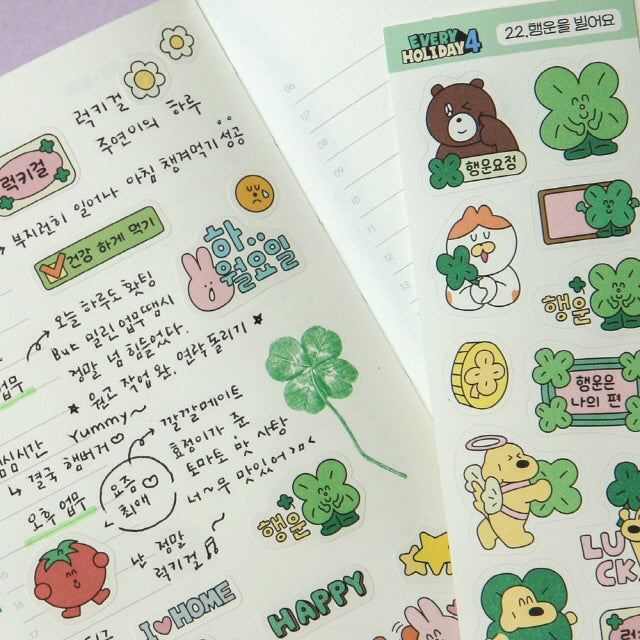 럭키걸
주연이의 하루
럭키걸
부지런히 일어나 아침 챙겨먹기 성공
건강 하게 먹기
하..
월요일
오늘 하루도 홧팅
But 밀린 업무땜시
정말 넘 힘들었다.
업무
원고 작업 완. 연락 돌리기
Yummy~
결국 햄버거
요즘
최애
깔깔메이트
효정이가 준
토마토 맛 사탕
너~무 맛있어 >ㅁ<
오후 업무
난 정말
럭키걸
행운
I HOME
HAPPY
06
07
08
09
10
11
12
13
15
16
EVERY
HOLIDAY 4
22.행운을 빌어요
행운요정
행운
행운은
나의 편
LU
CK